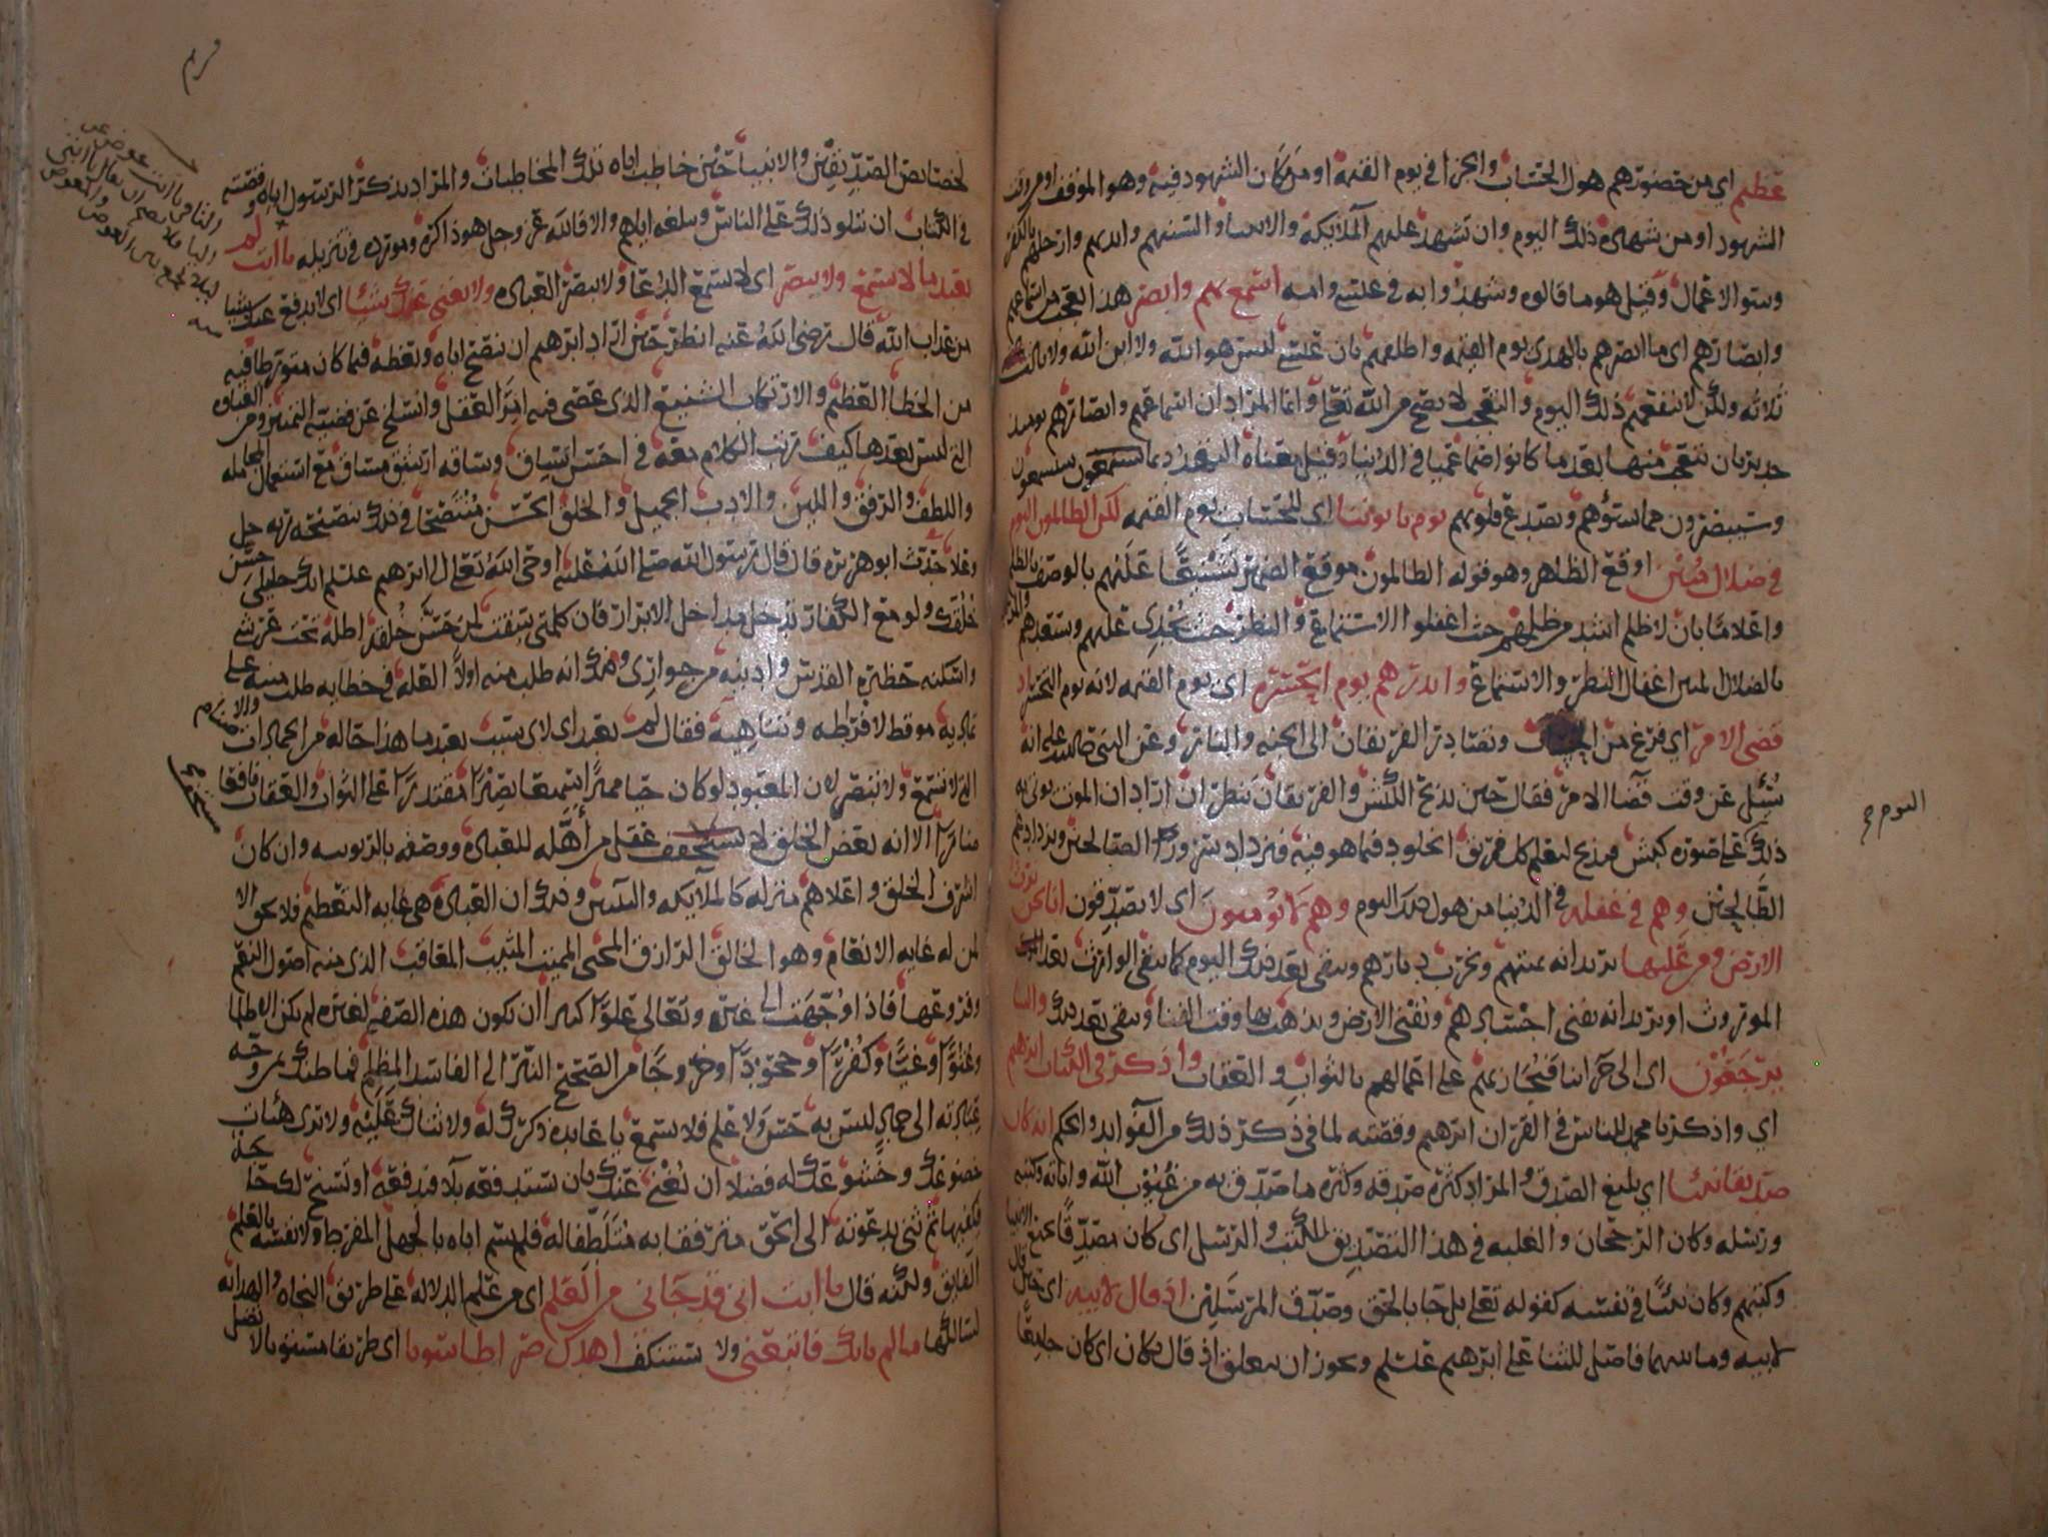 عظيم اي من حضورهم هول الحساب والجزا في يوم القيمة او من مكان الشهود فيه وهو الموقف او من وقت
الشهود او من شهادة ذلك اليوم وان تشهد عليهم الملايكة والانبيا والسنتهم وايديهم وارجلهم بالكفر
وسو الاعمال وقيل هو ما قالوه وشهدوا به في عيسى وامه اسمع بهم وابصر هذا تعجب من اسماعهم
وابصارهم اي ما ابصرهم بالهدى يوم القيمة واطلعهم بان عيسى ليس هو الله ولا ابن الله ولا ثالث
ثلاثه ولكن لا ينفعهم ذلك اليوم والتعجب لا يصح من الله تعالى وانما المراد ان اسماعهم وابصارهم يوميذ
جدير بان يتعجب منها بعد ما كانوا صما عميا في الدنيا وقيل معناه التهديد بما سيسمعون
وسيبصرون مما يسوهم ويصدع قلوبهم يوم ياتوننا اي للحساب يوم القيمه لكن الظالمون اليوم
في ضلال مبين اوقع الظاهر وهو قوله الظالمون موقع الضمير تسجيلا عليهم بالوصف بالظلم
واعلاما بان لا ظلم اشد من ظلمهم حيث اغفلوا الاستماع والنظر حيث يجدي عليهم ويسعدهم
بالضلال المبين اغفال النظر والاستماع وانذرهم يوم الحسرة اي يوم القيمه لانه يوم التحسر اذ
قضي الامر اي فرغ من الحساب وتصادر الفريقان الى الجنه والنار وعن النبي صلى الله عليه انه
سُئل عن وقت قضا الامر فقال حين يذبح الكبش والفريقان ينظران اراد ان الموت يوتى به
ذلك على صورة كبش فيذبح ليعلم كل فريق الخلود فيما هو فيه فيزداد سرور الصالحين ويزداد غم
الطالحين وهم في غفله في الدنيا من هول ذلك اليوم وهم لا يومنون اي لا يصدقون انا نحن نرث
الارض ومن عليها يريد انه يميتهم ويخرب ديارهم ويبقى بعد ذلك اليوم كما يبقى الوارث بعد
الموروث او يريد انه يفني اجسادهم ويُفني الارض ويذهب بها وقت الفنا ويبقى بعد ذلك والينا
يرجعون اي الى جزاينا فنجازيهم على اعمالهم بالثواب والعقاب واذكر في الكتاب ابرهيم
اي واذكر يا محمد للناس في القران ابرهيم وقصته لما في ذكر ذلك من الفوايد والحكم انه كان
صديقا نبيا اي بليغ الصدق والمراد كثرة صدقه وكثرة ما صدق به من غيوب الله واياته وكتبه
ورسله وكان الرجحان والغلبه في هذا التصديق للكتب والرسل اي كان مصدقا بجميع الانبيا
وكتبهم وكان نبيا في نفسه كقوله تعالى بل جا بالحق وصدق المرسلين اذ قال لابيه اي حين قال
لابيه وما بينهما فاصل للثنا على ابرهيم عليلم ويجوز ان يتعلق اذ قال بكان اي كان جامعا
اليوم
لخصايص الصديقين والانبيا حين خاطب اباه تلك المخاطبات والمراد بذكر الرسول اياه وقصته
في الكتاب ان يتلو ذلك على الناس ويبلغه اياهم والا فالله عز وجل هو ذاكره ومورده في تنزيله يا ابت لم
تعبد ما لا يسمع ولا يبصر اي لا يسمع الدعا ولا يبصر العباده ولا يغني عنك شيئا اي لا يدفع عنك شيا
من عذاب الله قال رضي الله عنه انظر حين اراد ابرهيم ان ينصح اباه ويعظه فيما كان متورطا فيه
من الخطا العظيم والارتكاب الشنيع الذي عصى فيه امر العقل وانسلخ عن قضية التمييز ومن الغباوه
التي ليس بعدها كيف رتب الكلام معه في احسن اتساق وساقه ارشق مساق مع استعمال المجامله
واللطف والرفق واللين والادب الجميل والخلق الحسن منتصحا في ذلك بنصيحة ربه جل
وعلا حدث ابو هريره قال قال رسول الله صلى الله عليه اوحى الله تعالى الى ابرهيم عليلم انك خليلي حسن
خلقك ولو مع الكفار تدخل مداخل الابرار فان كلمتي سبقت لمن حسن خلقه اظله تحت عرشي
واسكنه حظيرة القدس وادنيه من جواري وذلك انه طلب منه اولا العله في خطايه طلب منبه على
تماديه موقظ لافراطه وتناهيه فقال لم تعبد اي لاي سبب تعبد ما هذا حاله من الجمادات والاصنام
التي لا تسمع ولا تبصر لان المعبود لو كان حيا مميزا سميعا بصيرا مقتدرا على الثواب والعقاب نافعا
ضارا الا انه بعض الخلق لا يستخف عقل من أهله للعباده ووصفه بالربوبيه وان كان
اشرف الخلق واعلاهم منزله كالملايكه والنبيين وذلك ان العباده هي غايه التعظيم فلا يحق الا
لمن له غايه الانعام وهو الخالق الرازق المحيي المميت المثيب المعاقب الذي منه اصول النعم
وفروعها فاذا وُجّهت الى غيره وتعالى علوا كبيرا ان تكون هذه الصفه لغيره لم يكن الا ظلما
وعتوا وغيا وكفرا وجحودا وخروجا من الصحيح النير الى الفاسد المظلم فما ظنك بمن وجه
عبادته الى جماد ليس به حس ولا علم فلا يسمع يا عابده ذكرك له ولا ثناك عليه ولا يرى هيئات
خضوعك وخشوعك له فضلا ان يُغني عنك بان تستدفعه بلا فيدفعه او تسنح لك حاجة
فيكفيها ثم ثنى بدعوته الى الحق مترفقا به متلطفا له فلم يسم اباه بالجهل المفرط ولا نفسه بالعلم
الفايق ولكنه قال يا ابت اني قد جاني من العلم اي من علم الدلاله على طريق النجاه والهدايه
لسالكها ما لم ياتك فاتبعني ولا تستنكف اهدك صراطا سويا اي طريقا مستويا لا تضل